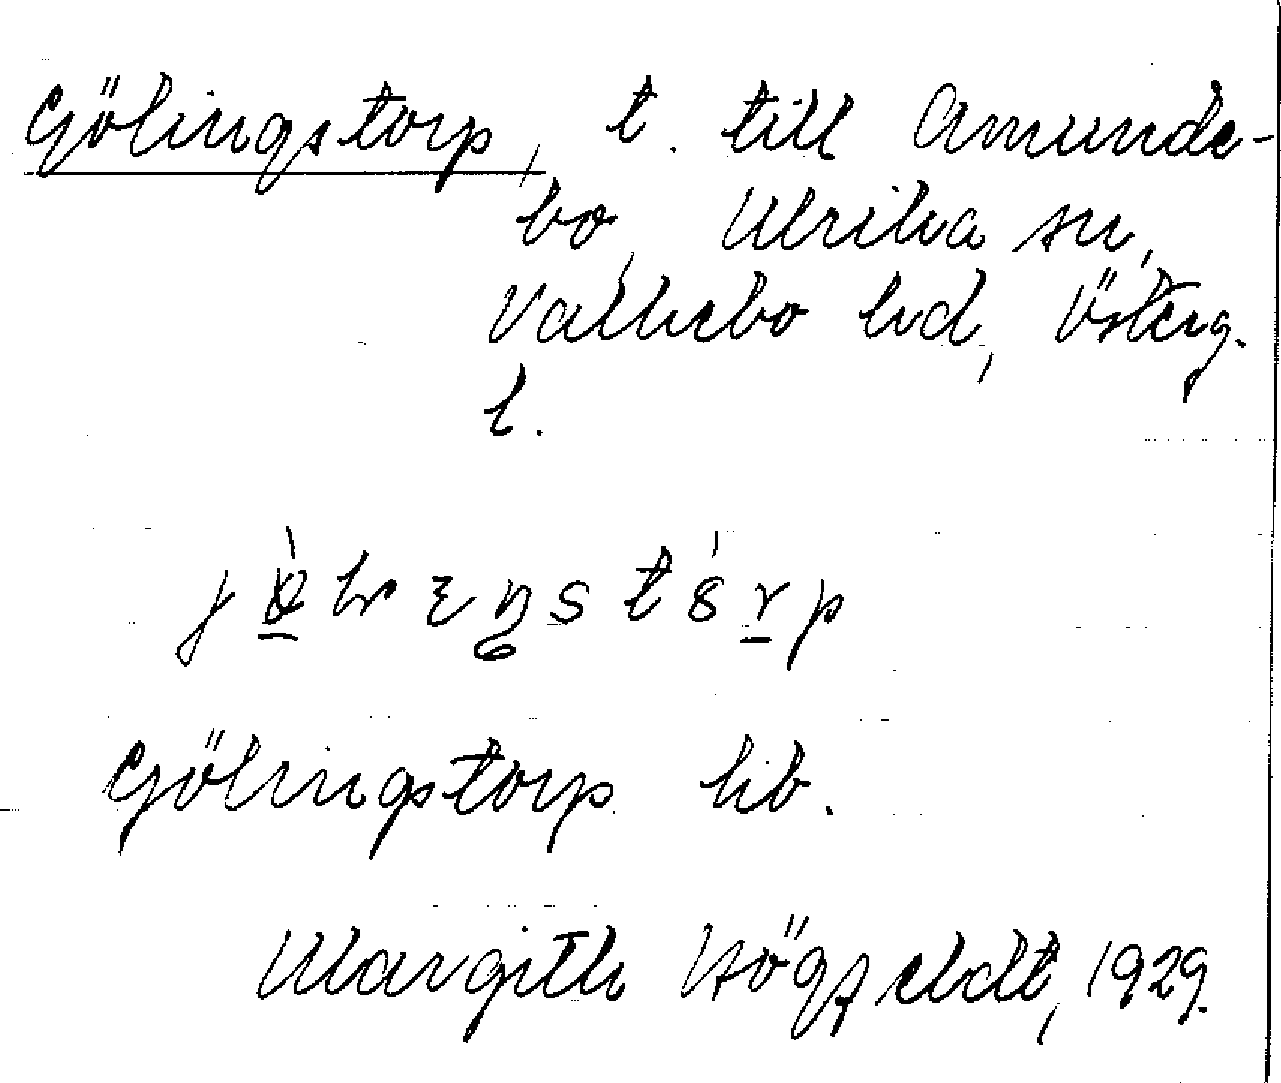 Gölingstorp, t. till Amunde-
bo, Ulrika sn,
Valkebo hd, Österg.
l.
Gölingstorp hb.
Margith Högfeldt, 1929.